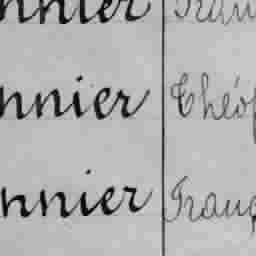 nnier Fran
nnier Théop
nnier Franç